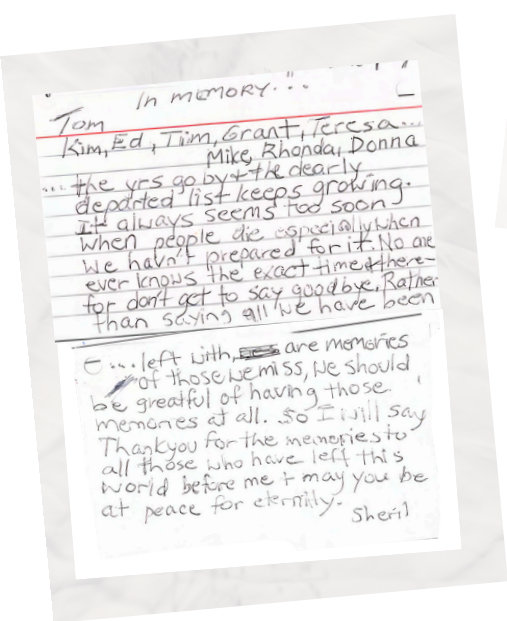 In memory...
Tom
Kim, Ed, Tiim, Grant, Teresa...
Mike, Rhonda, Donna
... the yrs go by + the dearly
departed list keeps growing.
It always seems too soon
when people die especially when
we havn't prepared for it. No one
ever knows the exact time & there-
for don't get to say goodbye. Rather
than saying all we have been
... left with, are memories
of those we miss, We should
be greatful of having those
memories at all. So I will say
Thankyou for the memories to
all those who have left this
world before me + may you be
at peace for eternitly.
Sheril